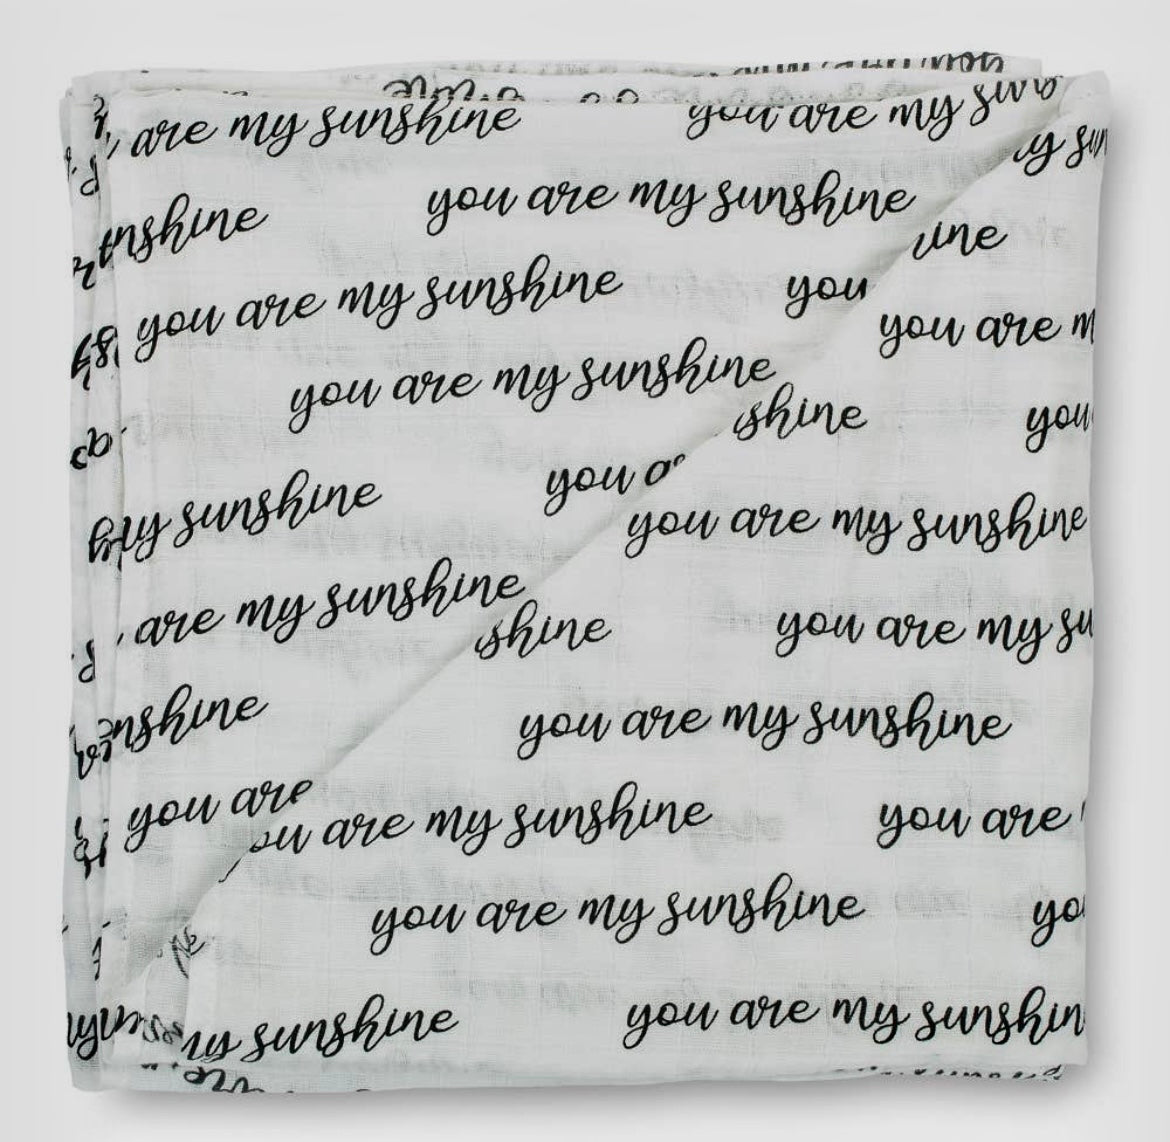 are my sunshine you are my
you are my sunshine
nshine
ine
you are my sunshine you
you are m
you are my sunshine
shine you
my sunshine you a
you are my sunshine
are my sunshine
shine you are my su
nshine
you are my sunshine
you are
ou are my sunshine you are
you are my sunshine yo
my sunshine you are my sunshin